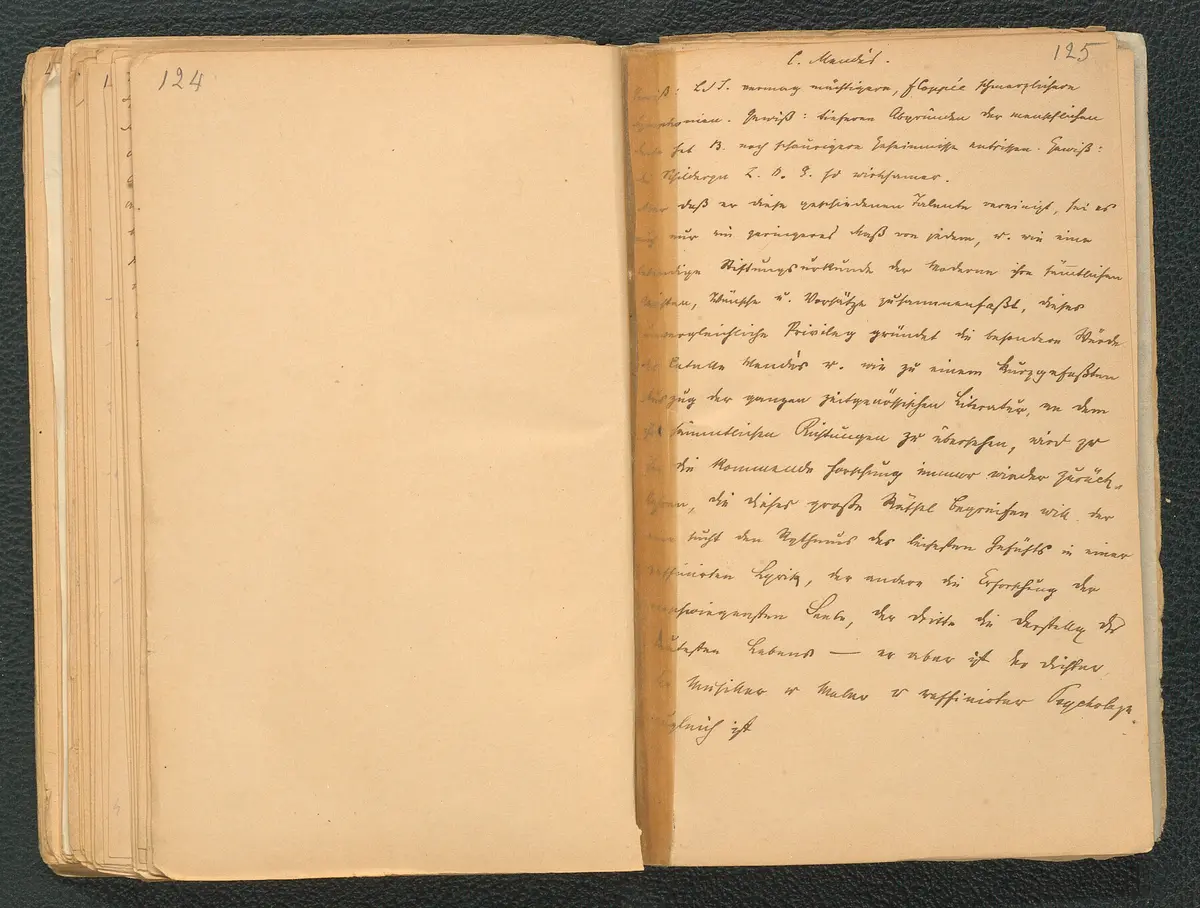 124
125
C. Mendès.
Gewiß: L d L. vermag mächtigere, Coppée schmerzlichere
Gewiß: tieferen Abgründen der menschlichen
hat B. noch schaurigere Geheimnisse entrissen. Gewiß:
Z. B. G. so wirksamer.
Aber daß er diese geschiedenen Talente vereinigt, sei es
auch nur ein geringeres Maß von jedem, u. wie eine
lebendige Stiftungsurkunde der Moderne ihre sämmtlichen
Wünsche u. Vorsätze zusammenfaßt, dieses
unvergleichliche Privileg gründet die besondere Würde
des Catulle Mendès u. wie zu einem kurzgefaßten
Auszug der ganzen zeitgenössischen Literatur, an dem
ihre sämmtlichen Richtungen zu übersehen, wird zu
ihm die kommende Forschung immer wieder zurück-
kehren, die dieses große Räthsel begreifen will. der
eine sucht den Rythmus des leisesten Gefühls in einer
raffinirten Lyrik, der andere die Erforschung der
verschwiegensten Seele, der dritte die Darstellg des
Lebens — er aber ist der Dichter,
der Musiker u Maler u raffinirter Psychologe
zugleich ist